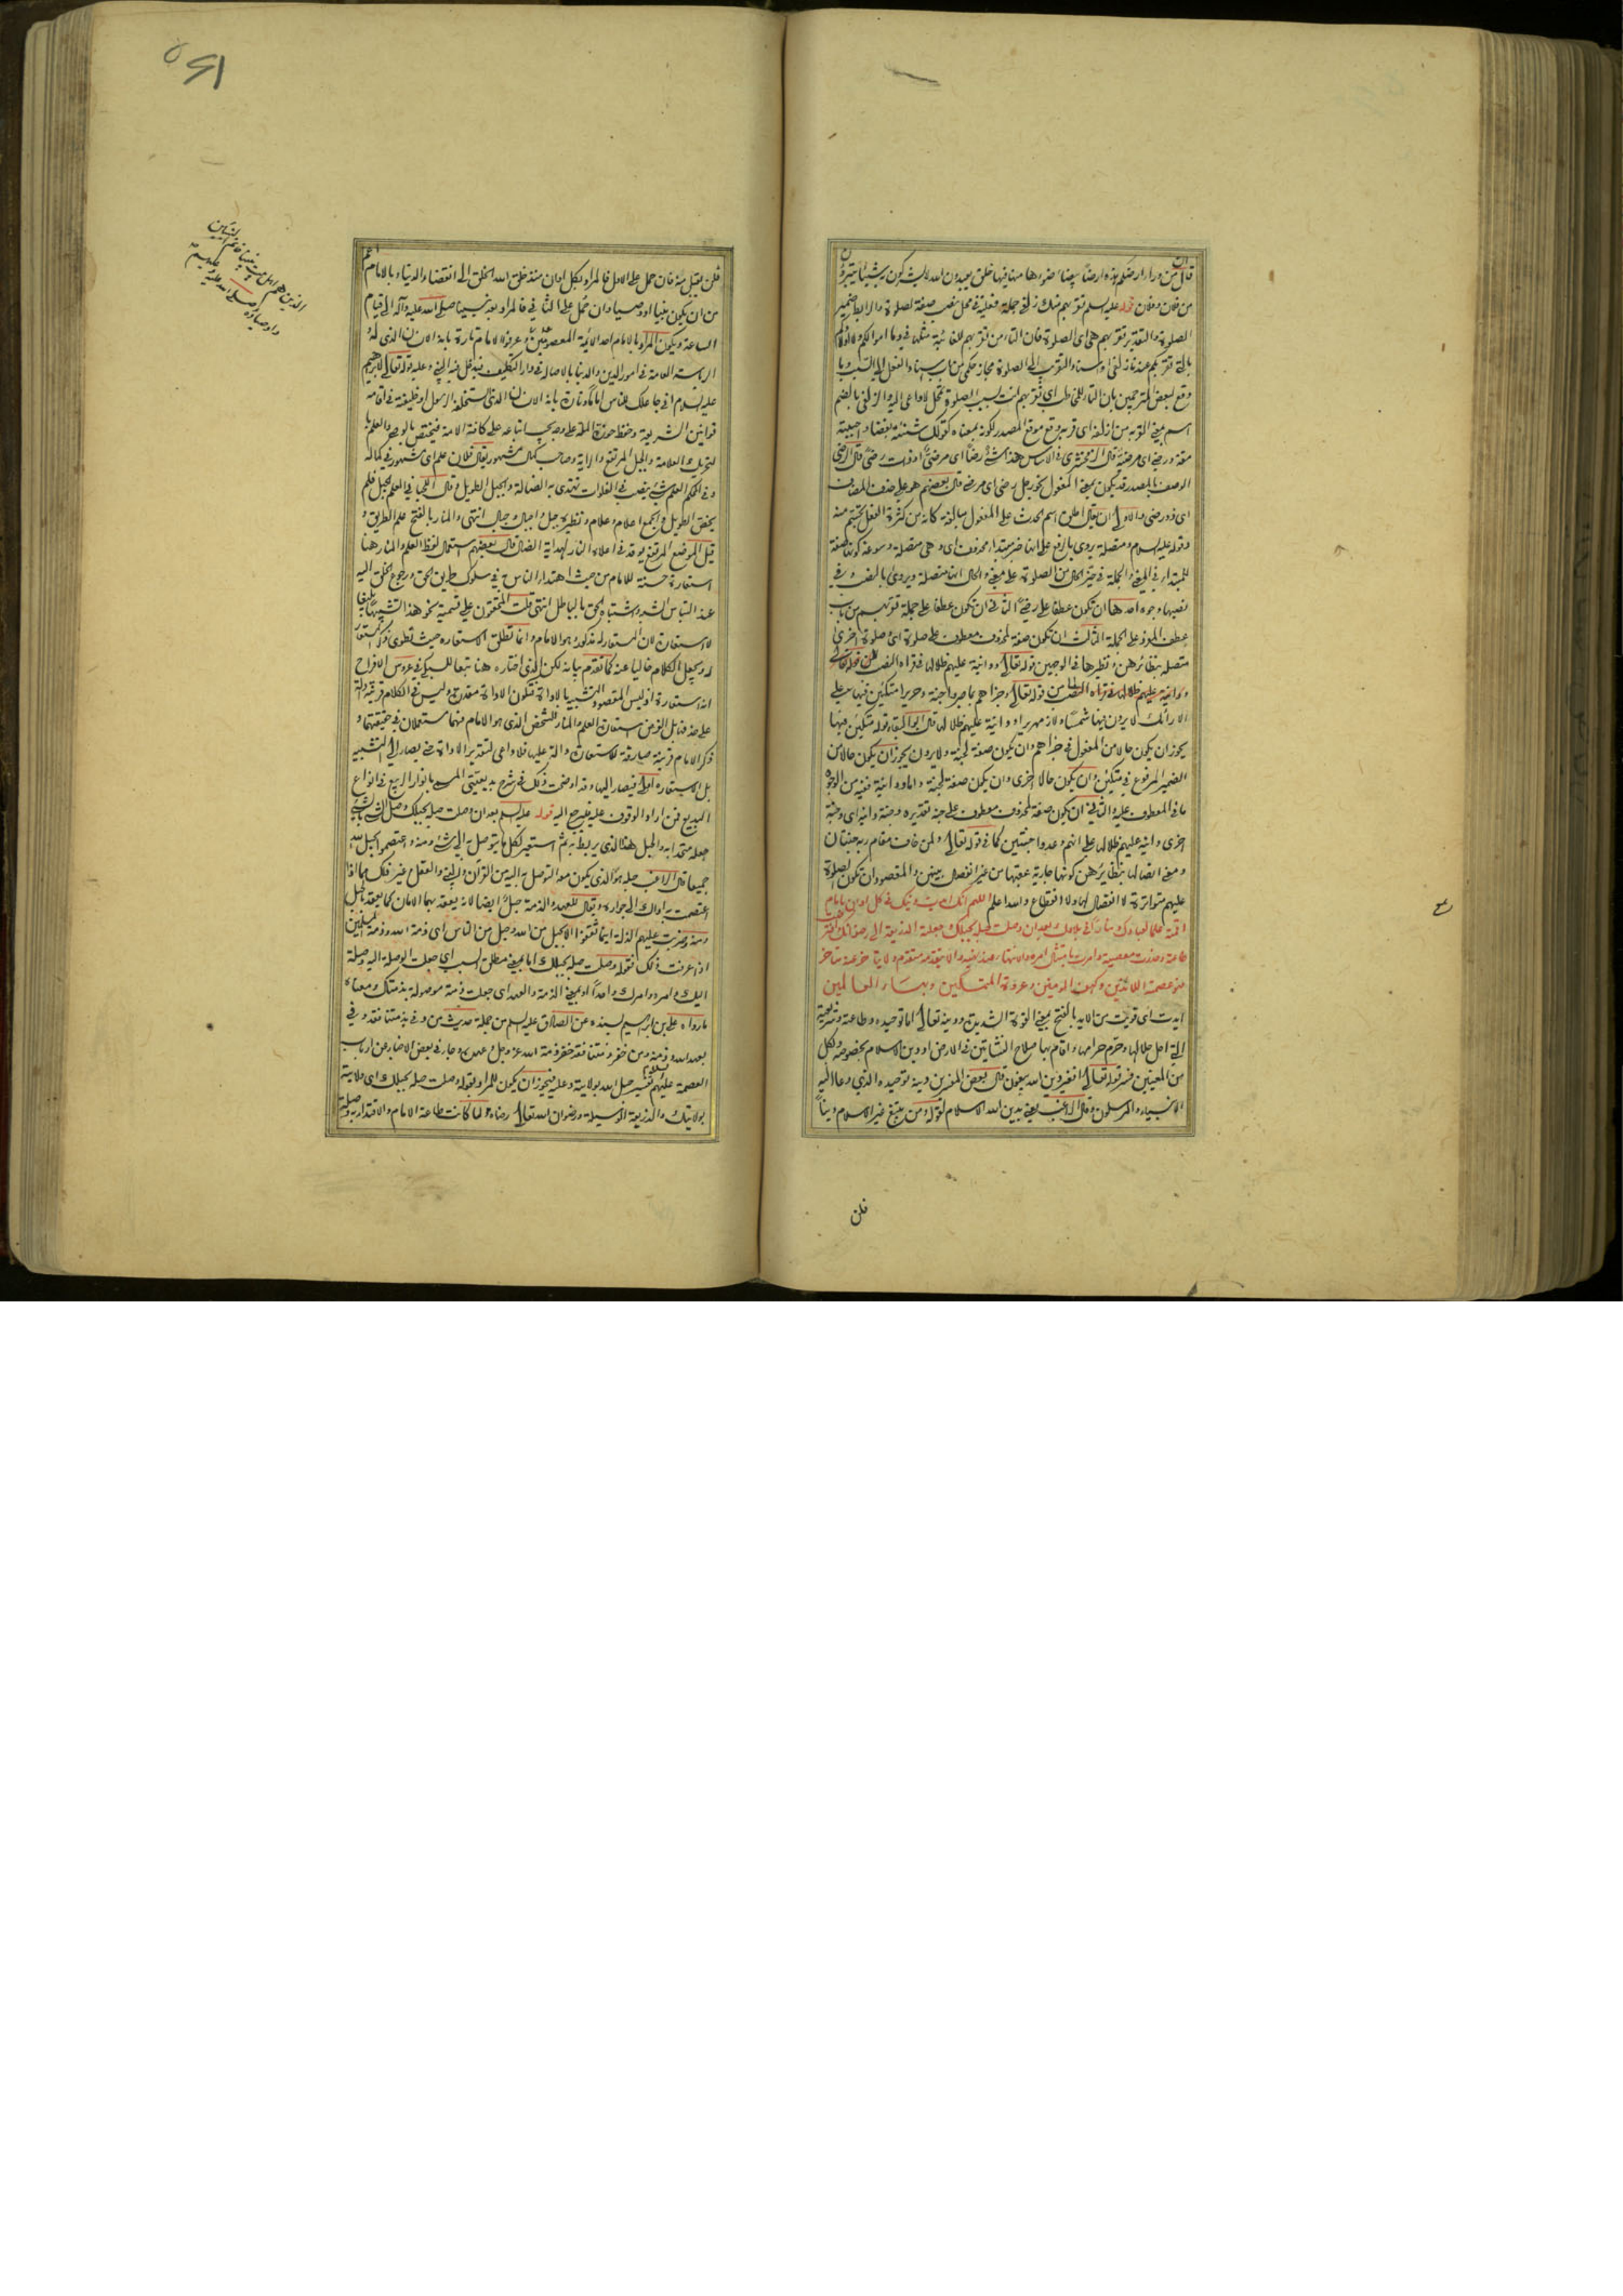 قال من وراء ارضكم هذه ارضا بيضاء ضوءها منها فيها خلق يعبدون الله لا يشركون به شيئا يتبرؤن
من فلان وفلان قوله عليه السلم تقربهم منك زلفى جملة فعلية في محل نصب صفة لصلوة والرابط ضمير
الصلوة والتقدير تقربهم هي اى الصلوة فان التاء من تقربهم للغائبة مثلها في وما اموالكم ولا اولادكم
بالتي تقربكم عندنا زلفى واسناد التقريب الى الصلوة مجاز حكمي من باب اسناد الفعل الى السبب وما
وقع لبعض المترجمين بان التاء للمخاطب اى تقربهم انت بسبب الصلوة تمحل لا داعى اليه والزلفى بالضم
اسم بمعنى القربة من ازلفه اى قربه وقع موقع المصدر لكونه بمعناه كقولك شنئته بغضا واحببته
مقة ورضى اى مرضية قال الزمخشرى في الاساس هذا شئ رضا اى مرضى اوذات رضى قال الرضى
الوصف بالمصدر قد يكون بمعنى المفعول نحو رجل رضى اى مرضى قال بعضهم هو على حذف المضاف
اى ذو رضى والاولى ان يقال اطلق اسم الحدث على المفعول مبالغة كانه من كثرة الفعل تجسم منه
وقوله عليه السلام ومتصلة يروى بالرفع على انها خبر مبتداء محذوف اى وهى متصلة وسوغه كونها صفة
للمبتداء في المعنى والجملة في حيز الحال من الصلوة على معنى والحال انها متصلة ويروى بالنصب وفي
نصبها وجوه احدها ان تكون عطفا على رضى الثاني ان تكون عطفا على جملة تقربهم من باب
عطف المفرد على الجملة الثالث ان تكون صفة لمحذوف معطوف على صلوة اى وصلوة اخرى
متصلة بنظائرهن ونظيرها في الوجهين قوله تعالى ودانية عليهم ظلالها في قراءة النصب من قوله تعالى
وجزاهم بما صبروا جنة وحريرا متكئين فيها على
الارائك لا يرون فيها شمسا ولا زمهريرا ودانية عليهم ظلالها قال ابو البقاء قوله متكئين فيها
يجوز ان يكون حالا من المفعول في جزاهم وان يكون صفة لجنة ولا يرون يجوز ان يكون حالا من
الضمير المرفوع في متكئين وان يكون حالا اخرى وان يكون صفة لجنة واما ودانية ففيه من الوجوه
ما في المعطوف عليه والثاني ان يكون صفة لمحذوف معطوف على جنة تقديره وجنة دانية اى وجنة
اخرى دانية عليهم ظلالها على انهم وعدوا جنتين كما في قوله تعالى ولمن خاف مقام ربه جنتان
ومعنى اتصالها بنظائرهن كونها جارية عقبها من غير انفصال بينهن والمقصود ان تكون الصلوة
عليهم متواترة لا انفصال لها ولا انقطاع والله اعلم اللهم انك ايدت دينك في كل اوان بامام
اقمته علما لعبادك ومنارا في بلادك بعد ان وصلت حبله بحبلك وجعلته الذريعة الى رضوانك وافترضت
طاعته وحذرت معصيته وامرت بامتثال امره والانتهاء عند نهيه والا يتقدمه متقدم ولا يتاخر عنه متاخر
فهو عصمة اللائذين وكهف المؤمنين وعروة المتمسكين وبهاء العالمين
ايدت اى قويت من الايد بالفتح بمعنى القوة الشديدة ودينه تعالى اما توحيده وطاعته وشريعته
التي احل حلالها وحرم حرامها واقام بها صلاح النشاتين في الارض او دين الاسلام بخصوصه وبكل
من المعنيين فسر قوله تعالى افغير دين الله يبغون قال بعض المفسرين دينه توحيده الذي دعا اليه
الانبياء والمرسلون وقال الراغب يعنى بدين الله الاسلام لقوله ومن يبتغ غير الاسلام دينا
فلن
فلن يقبل منه فان حمل على الاول فالمراد بكل اوان منذ خلق الله الخلق الى انقضاء الدنيا وبالامام اعم
من ان يكون نبيا او وصيا وان حمل على الثاني فالمراد بعد نبينا صلى الله عليه وآله الى قيام
الساعة ويكون المراد بالامام احد الائمة المعصومين وعرفوا الامام تارة بانه الانسان الذي له
الرياسة العامة في امور الدين والدنيا بالاصالة في دار التكليف فيدخل فيه النبي وعليه قوله تعالى لابرهيم
عليه السلام اني جاعلك للناس اماما وتارة بانه الانسان الذي استخلفه الرسول او خليفته في اقامة
قوانين الشريعة وحفظ حوزة الملة على وجه يجب اتباعه على كافة الامة فيختص بالوصى والعلم با
لتحريك العلامة والجبل المرتفع والراية وصاحب كمال مشهور يقال فلان علم اى مشهور في كماله
وفي المحكم العلم شئ ينصب في الفلوات تهتدى به الضالة والجبل الطويل وقال اللحياني العلم الجبل فلم
يخص الطويل والجمع اعلام وعلام ونظيره جبل واجبال وجبال انتهى والمنار بالفتح علم الطريق و
قيل الموضع المرتفع يوقد في اعلاه النار لهداية الضال قال بعضهم استعمال لفظ العلم والمنار هنا
استعارة حسنة للامام من حيث اهتداء الناس به في سلوك طريق الحق ورجوع الخلق اليه
عند التباس الشبه واشتباه الحق بالباطل انتهى قلت المحققون على تسمية نحو هذا تشبيها بليغا
لا استعارة لان المستعار له مذكور وهو الامام وانما تطلق الاستعارة حيث يطوى ذكر المستعار
له ويجعل الكلام خاليا عنه كما تقدم بيانه لكن الذي اختاره هنا تبعا للسبكي في عروس الافراح
انه استعارة اذ ليس المقصود التشبيه بالاداة فتكون الاداة مقدرة وليس في الكلام قرينة دالة
على حذفها بل الغرض استعارة العلم والمنار للشخص الذي هو الامام فهما مستعملان في حقيقتهما و
ذكر الامام قرينة صارفة للاستعارة دالة عليها فلا داعى لتقدير الاداة حتى يصار الى التشبيه
بل الاستعارة اولى فيصار اليها وقد اوضحت ذلك في شرح بديعيتي المسمى بانوار الربيع في انواع
البديع فمن اراد الوقوف عليه فليرجع اليه قوله عليه السلم بعد ان وصلت حبله بحبلك وصل الشئ بالشئ
جعله متحدا به والحبل هذا الذي يربط به ثم استعير لكل ما يتوصل به الى شئ ومنه واعتصموا بحبل الله
جميعا قال الراغب حبله هو الذي يمكن معه التوصل به اليه من القرآن والنبي والعقل وغير ذلك مما اذا
اعتصمت به اداك الى جواره ويقال للعهد والذمة حبل ايضا لانه يعقد بهما الامان كما يعقد بالحبل
ومنه وضربت عليهم الذلة اينما ثقفوا الا بحبل من الله وحبل من الناس اى ذمة الله وذمة المسلمين
اذا عرفت ذلك فقوله وصلت حبله بحبلك اما بمعنى مطلق السبب اى جعلت الوصلة اليه وصلة
اليك وامره وامرك واحدا او بمعنى الذمة والعهد اى جعلت ذمته موصولة بذمتك ومعناه
ما رواه على بن ابراهيم بسنده عن الصادق عليه السلم من جملة حديث من وفى بذمتنا فقد وفى
بعهد الله وذمته ومن خفر ذمتنا فقد خفر ذمة الله عز وجل وعهده وجاء في بعض الاخبار عن ارباب
العصمة عليهم السلام تفسير حبل الله بولايته وعليه فيجوز ان يكون المراد بقوله وصلت حبله بحبلك اى ولايته
بولايتك والذريعة الوسيلة ورضوان الله تعالى رضاه ولما كانت طاعة الامام والاقتداء به وصلة